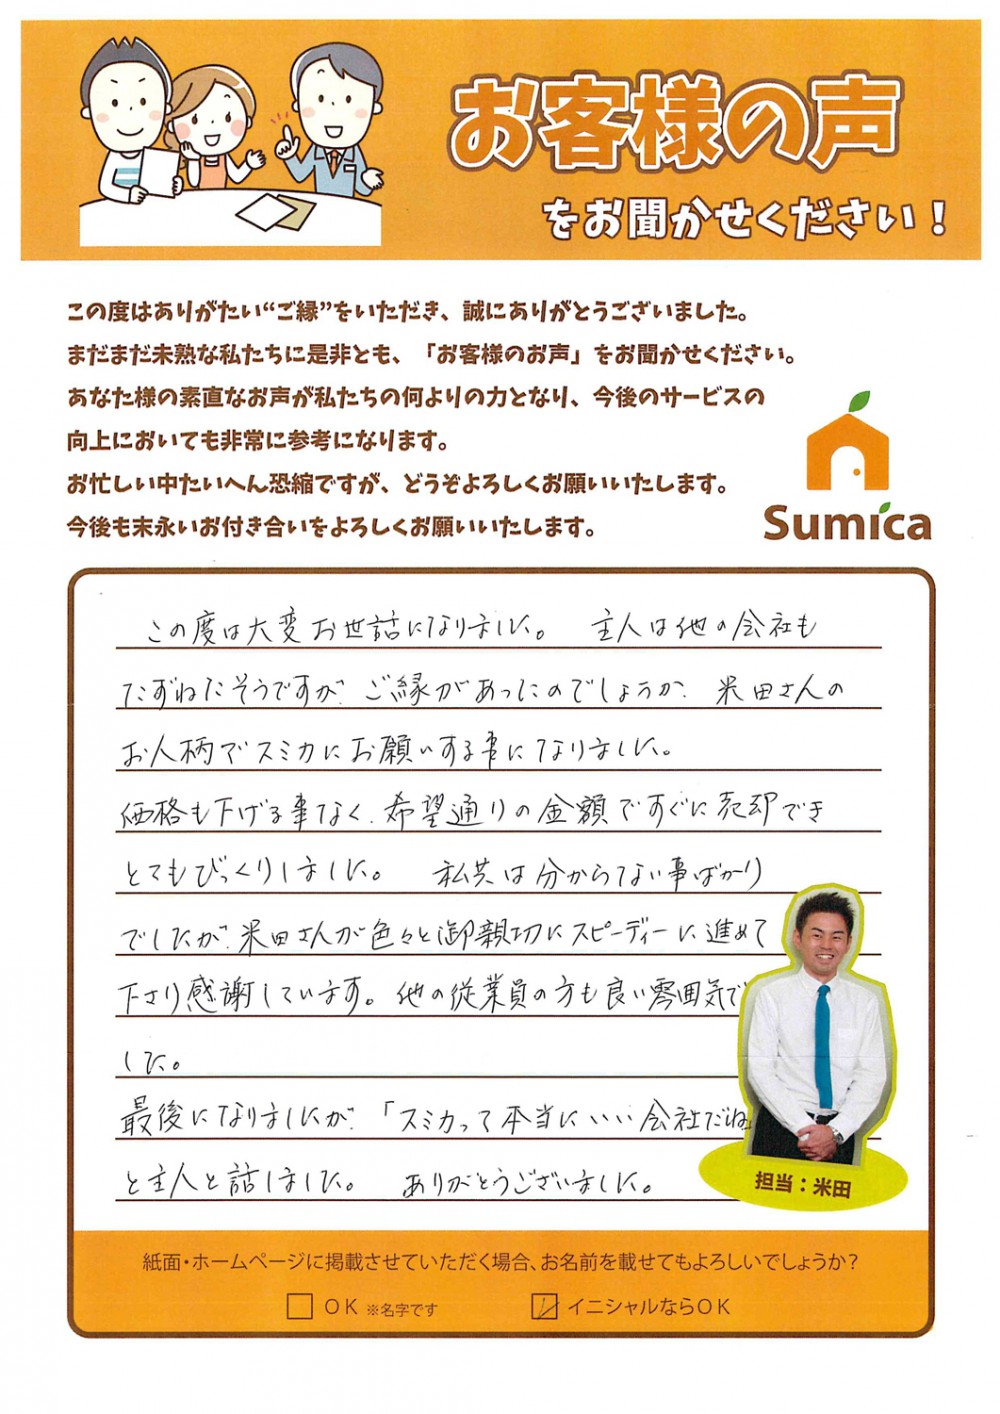 お客様の声
をお聞かせください！
この度はありがたい“ご縁”をいただき、誠にありがとうございました。
まだまだ未熟な私たちに是非とも、「お客様のお声」をお聞かせください。
あなた様の素直なお声が私たちの何よりの力となり、今後のサービスの
向上においても非常に参考になります。
お忙しい中たいへん恐縮ですが、どうぞよろしくお願いいたします。
今後も末永いお付き合いをよろしくお願いいたします。
Sumica
この度は大変お世話になりました。 主人は他の会社も
たずねたそうですが、ご縁があったのでしょうか、米田さんの
お人柄でスミカにお願いする事になりました。
価格も下げる事なく、希望通りの金額ですぐに売却でき
とてもびっくりしました。 私共は分からない事ばかり
でしたが、米田さんが色々と御親切にスピーディーに進めて
下さり感謝しています。他の従業員の方も良い雰囲気で
した。
最後になりましたが、「スミカって本当にいい会社だね」
と主人と話しました。 ありがとうございました。
担当：米田
紙面・ホームページに掲載させていただく場合、お名前を載せてもよろしいでしょうか？
OK ※名字です イニシャルならOK